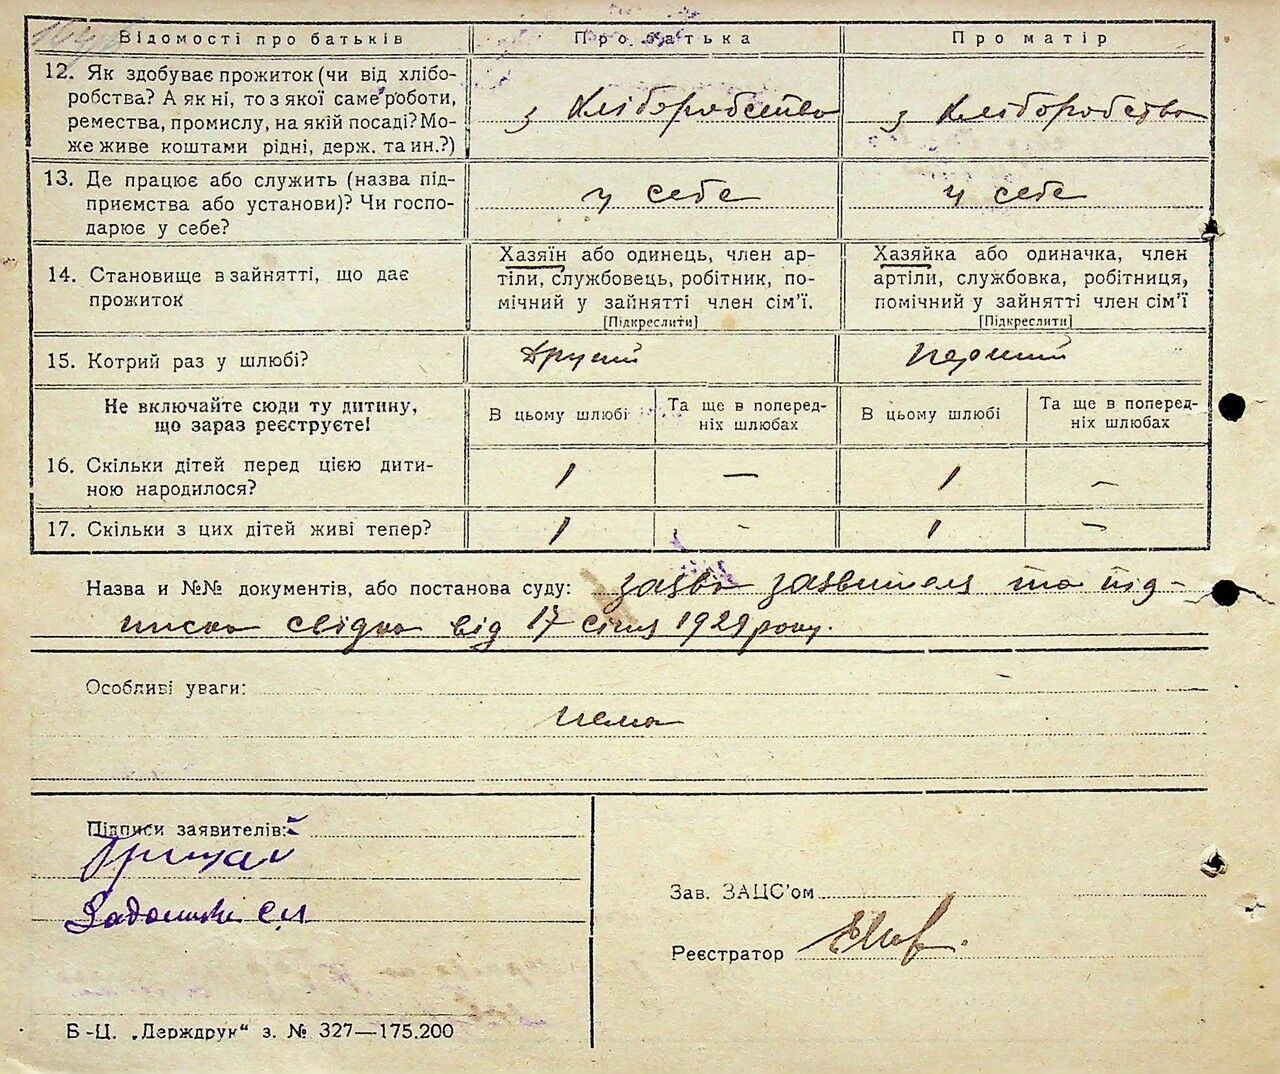 Відомості про батьків
Про батька
Про матір
12. Як здобуває прожиток (чи від хлібо-
робства? А як ні, то з якої саме роботи,
ремества, промислу, на якій посаді? Мо-
же живе коштами рідні, держ. та ин.?)
з хліборобства
з хліборобства
13. Де працює або служить (назва під-
приємства або установи)? Чи госпо-
дарює у себе?
у себе
у себе
14. Становище в зайнятті, що дає
прожиток
Хазяїн або одинець, член ар-
тіли, службовець, робітник, по-
мічний у зайнятті член сім'ї.
[Підкреслити]
Хазяйка або одиначка, член
артіли, службовка, робітниця,
помічний у зайнятті член сім'ї
[Підкреслити]
15. Котрий раз у шлюбі?
другий
перший
Не включайте сюди ту дитину,
що зараз реєструєте!
В цьому шлюбі
Та ще в попеpед-
ніх шлюбах
В цьому шлюбі
Та ще в попеpед-
ніх шлюбах
16. Скільки дітей перед цією дити-
ною народилося?
1
—
1
-
17. Скільки з цих дітей живі тепер?
1
-
1
-
Назва и №№ документів, або постанова суду: заява заявителя та під-
писка свідка від 17 січня 1929 року.
Особливі уваги:
нема
Підписи заявителів:
Зав. ЗАЦС'ом
Реєстратор
Б-Ц. „Держдрук“ з. № 327—175.200